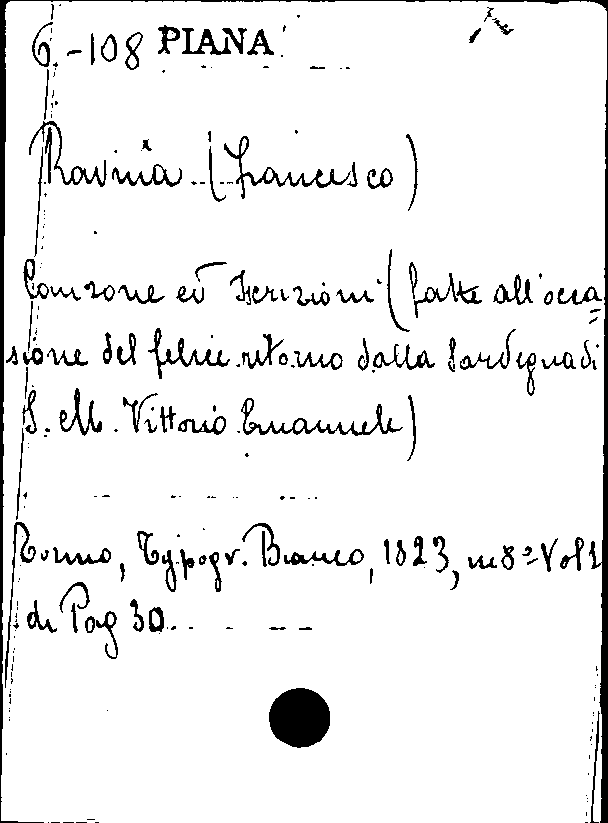 6.-108 PIANA
Ravina (Francesco)
Canzone ed Iscrizioni (fatte all'occa=
sione del felice ritorno dalla Sardegna di
S. M. Vittorio Emanuele)
Torino, Typogr. Bianco, 1823, in 8º Vol 1
di Pag 30.